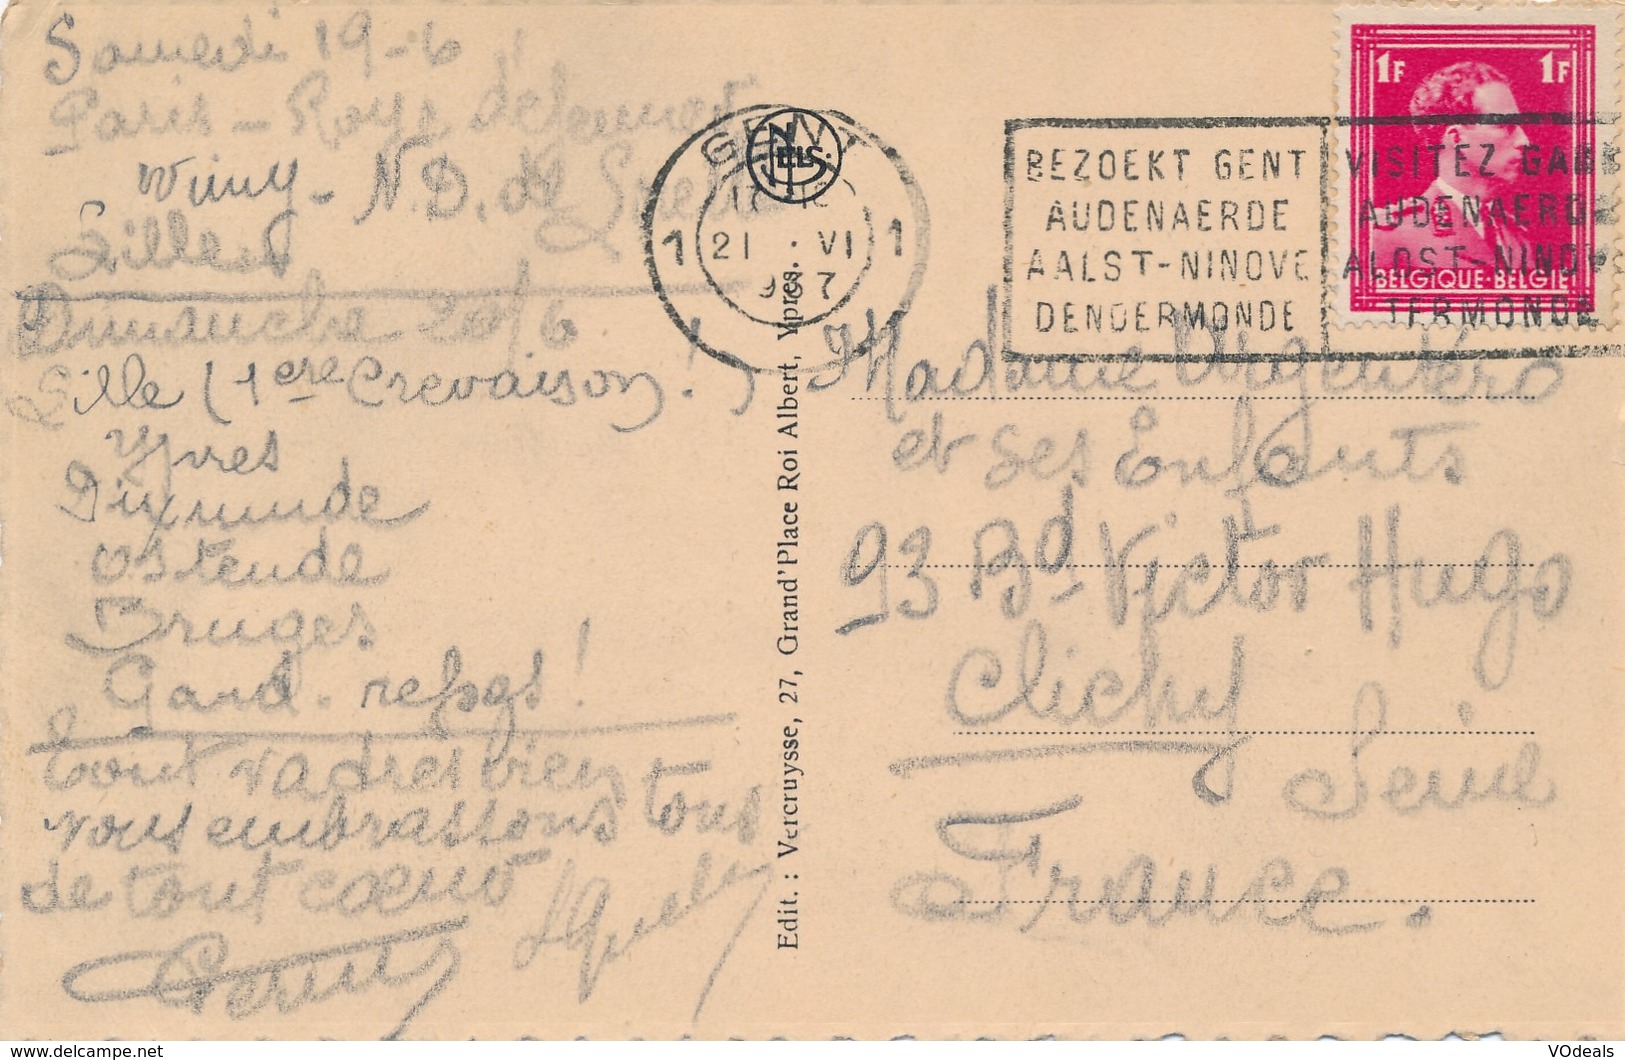 Samedi 19-6
Paris - Roye déjeuner
Vimy - N.D. de Lorette
Lille
Dimanche 20/6
Lille (1ere Crevaison!)
Ypres
Dixmude
Ostende
Bruges
Gand - repos!
tout va très bien
vous embrassons tous
de tout cœur
GENT
NELS
17 18
1 21 · VI 1
7
BEZOEKT GENT
AUDENAERDE
AALST-NINOVE
DENDERMONDE
VISITEZ GAND
AUDENAERDE
ALOST-NINOVE
TERMONDE
1F 1F
BELGIQUE·BELGIE
Edit.: Vercruysse, 27, Grand'Place Roi Albert, Ypres.
Madame Argentéro
et ses Enfants
93 Bd Victor Hugo
Clichy
Seine
France.
VOdeals
www.delcampe.net